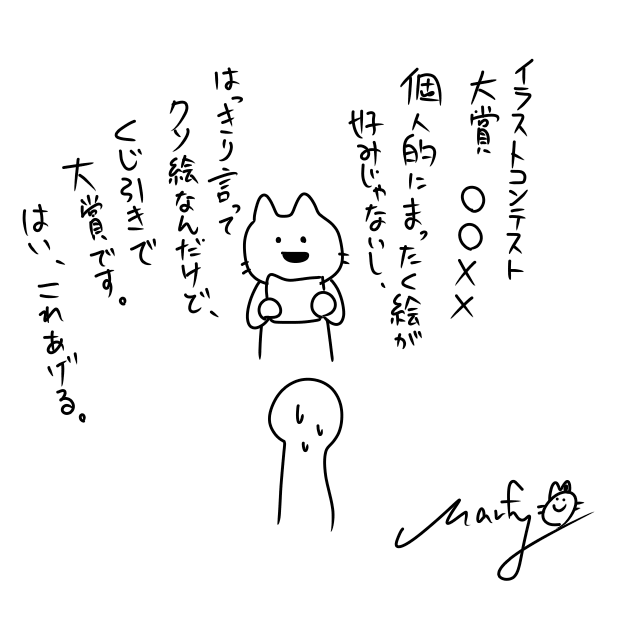 イラストコンテスト
大賞 〇〇××
個人的にまったく絵が
好みじゃないし、
はっきり言って
クソ絵なんだけど、
くじ引きで
大賞です。
はい、これあげる。
Marfy